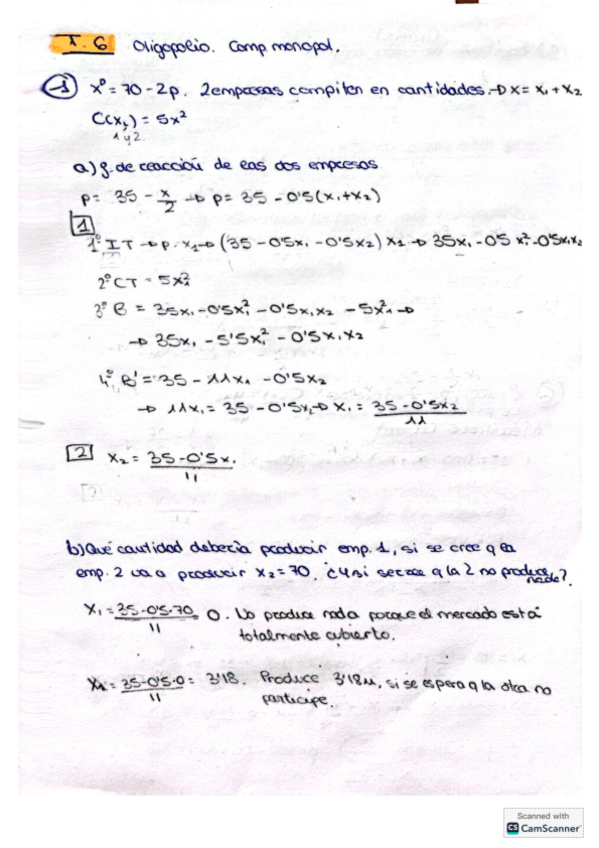 T. 6 Oligopolio. Comp. monopol.
1 x^D = 70 - 2p. 2 empresas compiten en cantidades. → x = x₁ + x₂
C(x₁) = 5x²
1 y 2.
a) f. de reacción de las dos empresas
p = 35 - x/2 → p = 35 - 0'5(x₁+x₂)
1
1º IT → p·x₁ → (35 - 0'5x₁ - 0'5x₂) x₁ → 35x₁ - 0'5x₁² - 0'5x₁x₂
2º CT = 5x₁²
3º B = 35x₁ - 0'5x₁² - 0'5x₁x₂ - 5x₁² →
→ 35x₁ - 5'5x₁² - 0'5x₁x₂
4º B' = 35 - 11x₁ - 0'5x₂
→ 11x₁ = 35 - 0'5x₂ → x₁ = 35 - 0'5x₂ / 11
2 x₂ = 35 - 0'5x₁ / 11
b) Qué cantidad debería producir emp. 1, si se cree q la
emp. 2 va a producir x₂ = 70. ¿Y si se cree q la 2 no produce nada?
x₁ = 35 - 0'5·70 / 11 = 0. No produce nada porque el mercado está
totalmente cubierto.
x₁ = 35 - 0'5·0 / 11 = 3'18. Produce 3'18u, si se espera q la otra no
participe.
Scanned with
CS CamScanner